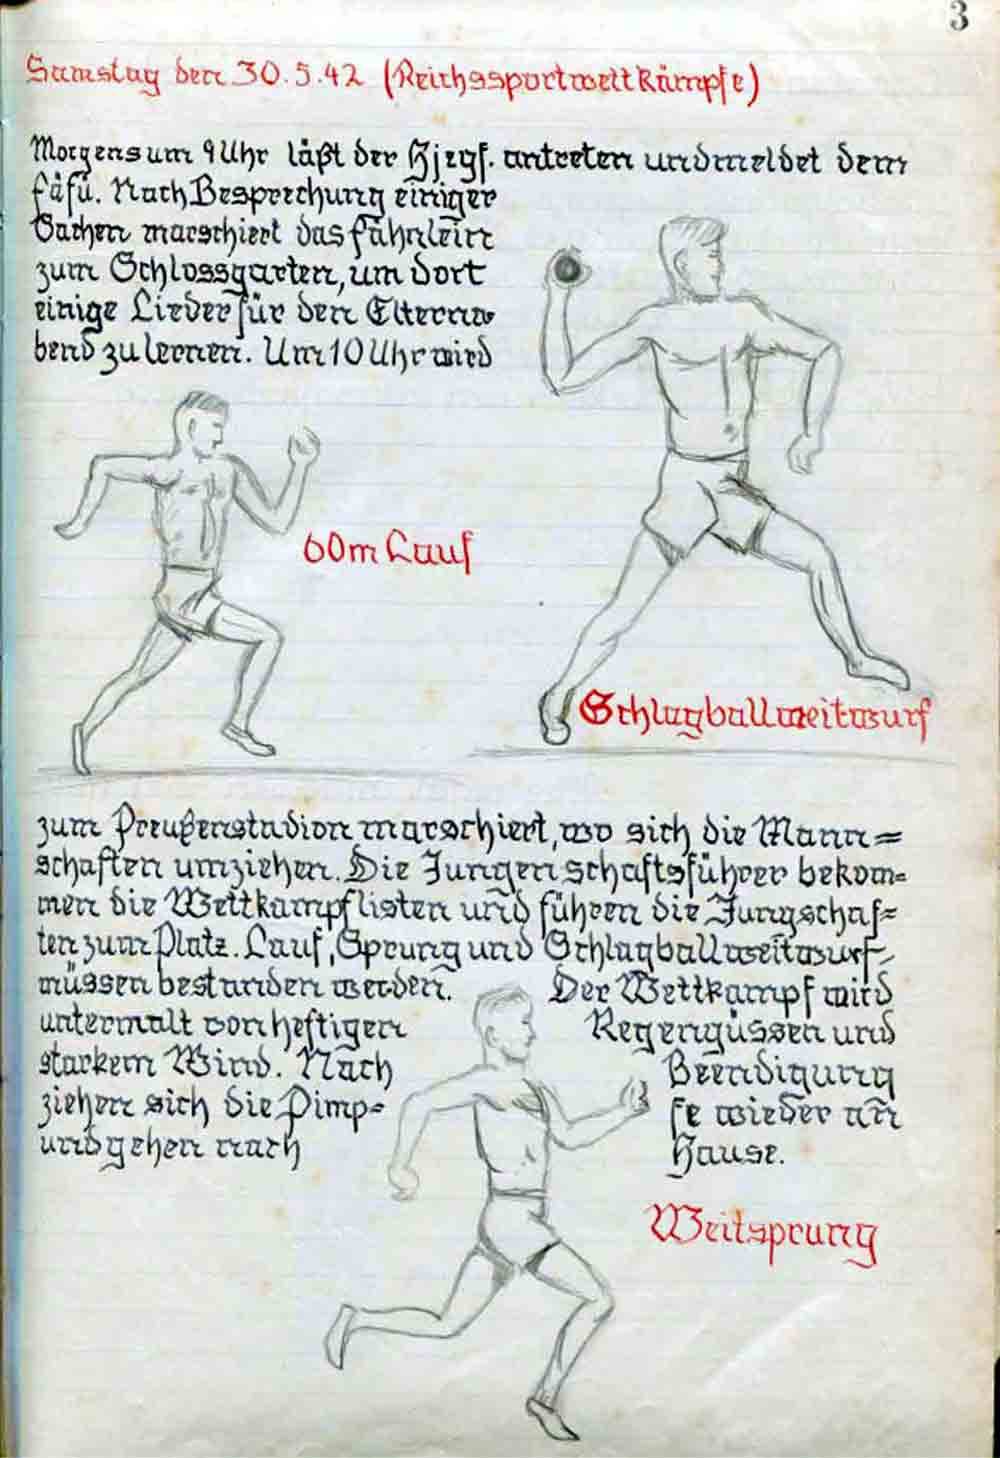 3
Samstag den 30.5.42 (Reichssportwettkämpfe)
Morgens um 9 Uhr läßt der Hjzgf. antreten und meldet dem
Fäfü. Nach Besprechung einiger
Sachen marschiert das Fähnlein
zum Schlossgarten, um dort
einige Lieder für den Elterna-
bend zu lernen. Um 10 Uhr wird
60m Lauf
Schlagballweitwurf
zum Preußenstadion marschiert, wo sich die Mann=
schaften umziehen. Die Jungenschaftsführer bekom=
men die Wettkampflisten und führen die Jungschaf=
ten zum Platz. Lauf, Sprung und Schlagballweitwurf
müssen bestanden werden. Der Wettkampf wird
untermalt von heftigen Regengüssen und
starkem Wind. Nach Beendigung
ziehen sich die Pimp= fe wieder an
und gehen nach Hause.
Weitsprung